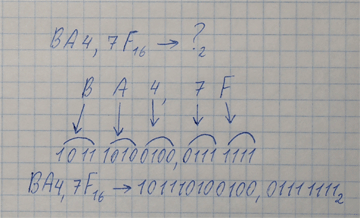 BA4,7F₁₆ → ?₂
B A 4, 7 F
1011 1010 0100,0111 1111
BA4,7F₁₆ → 101110100100,01111111₂